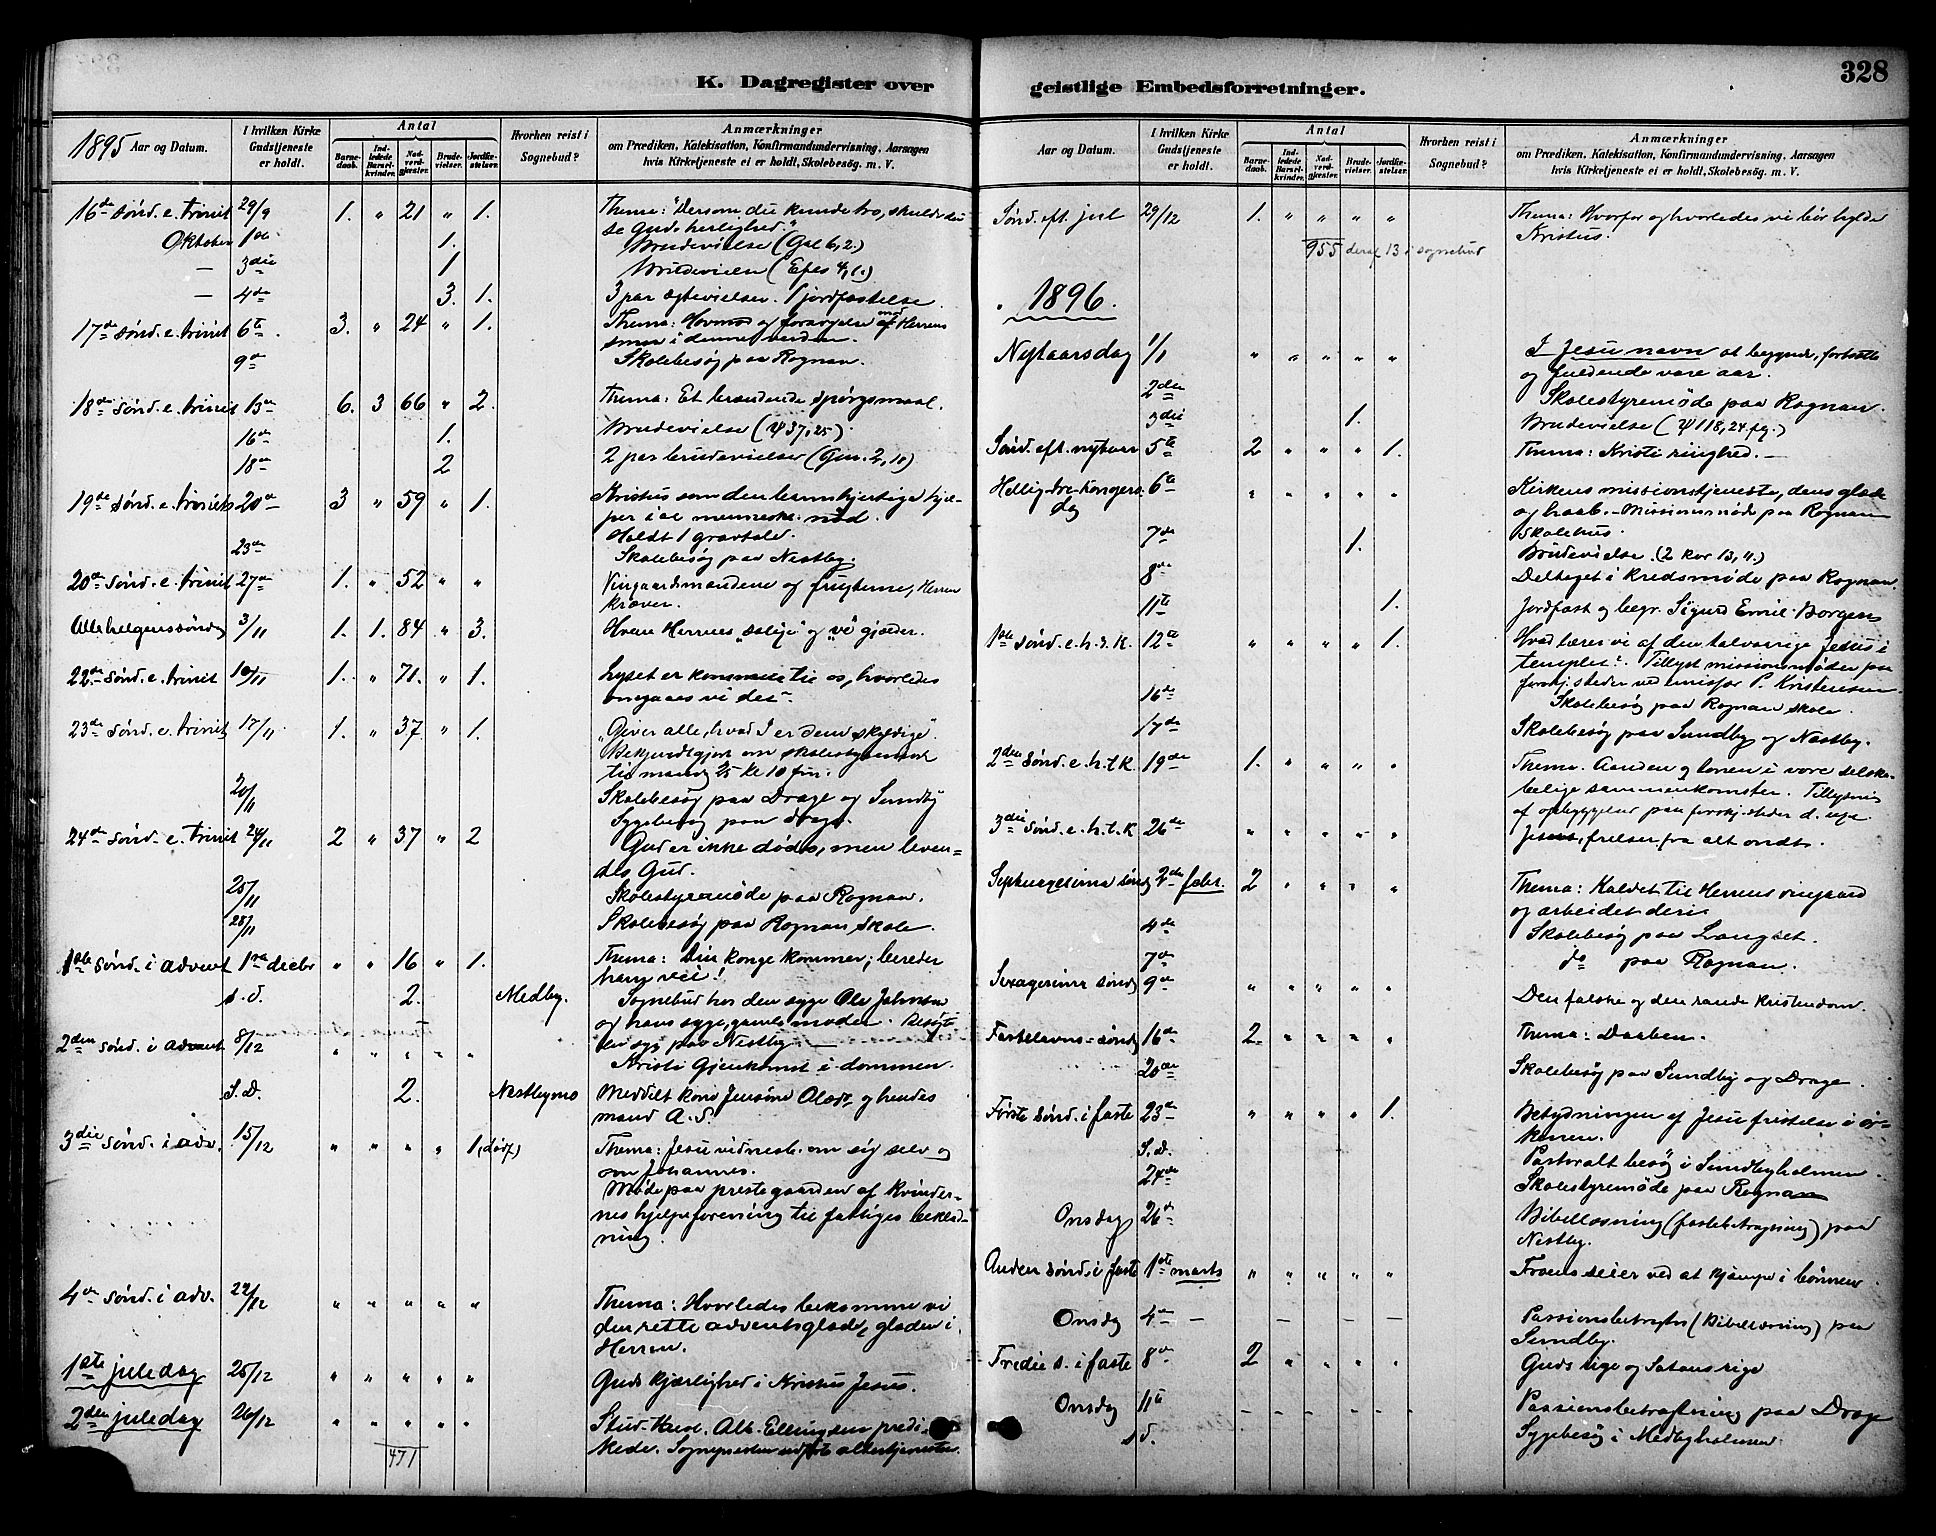 K. Dagregister over geistlige Embedsforretninger. 328
1895 Aar og Datum. | I hvilken Kirke Gudstjeneste er holdt. | Antal | Barnedaab. | Indledede Barselkvinder. | Nadverdgjæster. | Brudevielser. | Jordfæstelser. | Hvorhen reist i Sognebud? | Anmærkninger om Prædiken, Katekisation, Konfirmandundervisning, Aarsagen hvis Kirketjeneste ei er holdt, Skolebesög m. V.
16de sønd. e. trinit 29/9 1. " 21 " 1. Thema: "Dersom du kunde tro, skulde du
se Guds herlighed."
Oktober 1ste 1. Brudevielse (Gal 6,2.)
— 3die 1 Brudevielse (Efes 4,1.)
— 4de 3. 1. 3 par ægtevielser. 1 jordfæstelse
17de sønd. e. trinit 6te 3. " 24 " 1. Thema: Hovmod og fornyelse Herrens
i denne verden.
9de Skolebesøg paa Rognan.
18de sønd. e. trinit 13de 6. 3 66 " 2. Thema: Et brændende spörgsmaal.
16de 1. Brudevielse (Ψ 37,25)
18de 2 2 par brudevielser (Gen. 2,18)
19de sønd. e. trinit 20de 3 " 59 " 1. Kristus som den barmhjertige hjæl-
per i al menneske nød.
Holdt 1 gravtale.
23de Skolebesøg paa Nestby.
20de sønd. e. trinit 27de 1. " 52 " " Vingaardsmændene og frugterne, Herren
kræver.
Allehelgenssøndag 3/11 1. 1. 84 " 3. Hvem Herrens "salige" og "ve" gjælder.
22de sønd. e. trinit 10/11 1. " 71. " 1. Lyset er kommet til os, hvorledes
omgaaes vi det.
23de sønd. e. trinit 17/11 1. " 37 " 1. "Giver alle, hvad I er dem skyldige".
Bekjendtgjort om skolestyremøde
til mandag 25 kl 10 fm.
20/11 Skolebesøg paa Drage og Sundby
Sygebesøg paa Drage.
24de sønd. e. trinit 24/11 2 " 37 " 2 Gud er ikke dødes, men leven-
des Gud.
25/11 Skolestyremøde paa Rognan.
28/11 Skolebesøg paa Rognan skole.
1ste sønd. i advent 1ste decbr " " 16 " 1. Thema: Din konge kommer; bereder
ham vei!
s. d. 2. Medby. Sognebud hos den syge Ole Johnsen
og hans syge, gamle moder. Besøgte
en syg paa Nestby.
2den sønd. i advent 8/12 " " " " " Kristi Gjenkomst i dommen.
S. D. 2. Meddelt kone Jensine Olsdr og hendes
mand A. S.
3die sønd. i adv. 15/12 " " " " 1 Thema: Jesu vidnesb. om sig selv og
om Johannes.
Møde paa prestegaarden af Kvinder-
nes hjelpeforening til fattiges beklæd-
ning.
4de sønd. i adv. 22/12 " " " " " Thema: Hvorledes bekomme vi
den rette adventsglæde, glæden i
Herren.
1ste juledag 25/12 " " " " " Guds kjærlighed i Kristus Jesus.
2den juledag 26/12 " " " " " Stud. Alb. Ellingsen prædi-
kede. Sognepresten udførte altertjenesten.
471
Aar og Datum. | I hvilken Kirke Gudstjeneste er holdt. | Antal | Barnedaab. | Indledede Barselkvinder. | Nadverdgjæster. | Brudevielser. | Jordfæstelser. | Hvorhen reist i Sognebud? | Anmærkninger om Prædiken, Katekisation, Konfirmandundervisning, Aarsagen hvis Kirketjeneste ei er holdt, Skolebesög m. V.
Sønd. eft. jul 29/12 1. " " " " Thema: Hvorfor og hvorledes vi bør hylde
Kristus.
955 deraf 13 i sognebud
1896.
Nytaarsdag 1/1 " " " " " I Jesu navn at begynde, fortsætte
og fuldende vore aar.
2den Skolestyremøde paa Rognan.
3die 1. Brudevielse (Ψ 118,24 flg.)
Sønd. eft. nytaar 5te 2 " " " 1. Thema: Kristi ringhed.
Hellig-tre-Konger- 6te " " " " " Kirkens missionstjeneste, dens glæde
dag og haab. – Missionsmøde paa Rognan
skolehus.
7de 1. Brudevielse. (2 Kor 13,11.)
8de Deltaget i Kredsmøde paa Rognan
11te 1. Jordfæst og begr. Sigurd Emil Borgen
1ste sønd. e. h.3.K. 12te " " " " 1. Hvad lærer vi af den tolvaarige Jesus i
templet? Tillyst missionsmøder paa
forskj. steder ved emissær P. Kristensen
16de Skolebesøg paa Rognan skole.
17de Skolebesøg paa Sundby og Nestby.
2den sønd. e. h.t.K. 19de 1. " " " " Thema. Aanden og tonen i vore selska-
belige sammenkomster. Tillysning
af opbyggelser paa forskj. steder d. uge.
3die sønd. e. h.t.K 26de " " " " " Jesus, frelser fra alt ondt.
Septuagesima sønd 2den febr. 2 " " " " Thema: Kaldet til Herrens vingaard
og arbeidet deri.
4de Skolebesøg paa Langset.
7de do paa Rognan.
Sexagesima sønd 9de " " " " " Den falske og den sande Kristendom.
Fastelavns-sønd 16de 2 " " " " Thema: Daaben.
20de Skolebesøg paa Sundby og Drage.
Første sønd. i faste 23de " " " " 1. Betydningen af Jesu fristelse i ør-
kenen.
S. D. Pastoralt besøg i Sundbyholmen
24de Skolestyremøde paa Rognan
Onsdag 26de Bibellæsning (fastebetragtning) paa
Nestby.
Anden sønd. i faste 1ste marts " " " " " Troens seier ved at kjæmpe i bønnen.
Onsdag 4de — — — — — — Passionsbetragtn (Bibellæsning) paa
Sundby.
Tredie s. i faste 8de 2 " " " " Guds rige og Satans rige
Onsdag 11te — — — — — Passionsbetragtning paa Drage
s. d. Sygebesøg i Medbyholmen